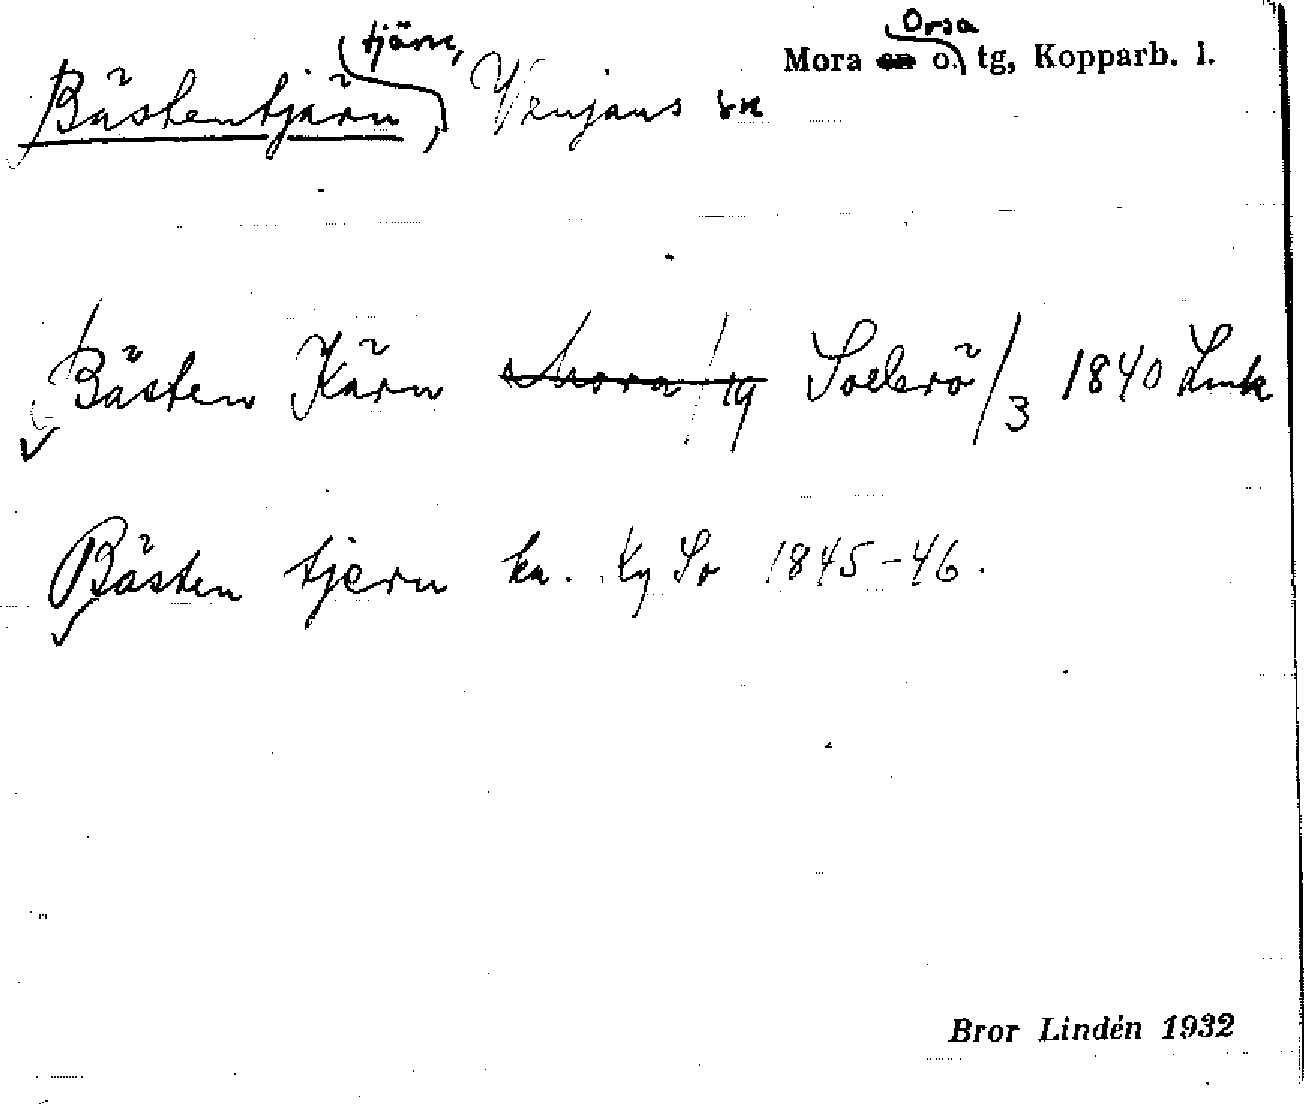 tjärn, Orsa
Bästentjärn, Venjans sn Mora sn o. tg, Kopparb. l.
Bästen Kärn Mora/tg Sollerö/3 1840 Link
Bästen tjern kn. Ky So 1845-46.
Bror Lindén 1932